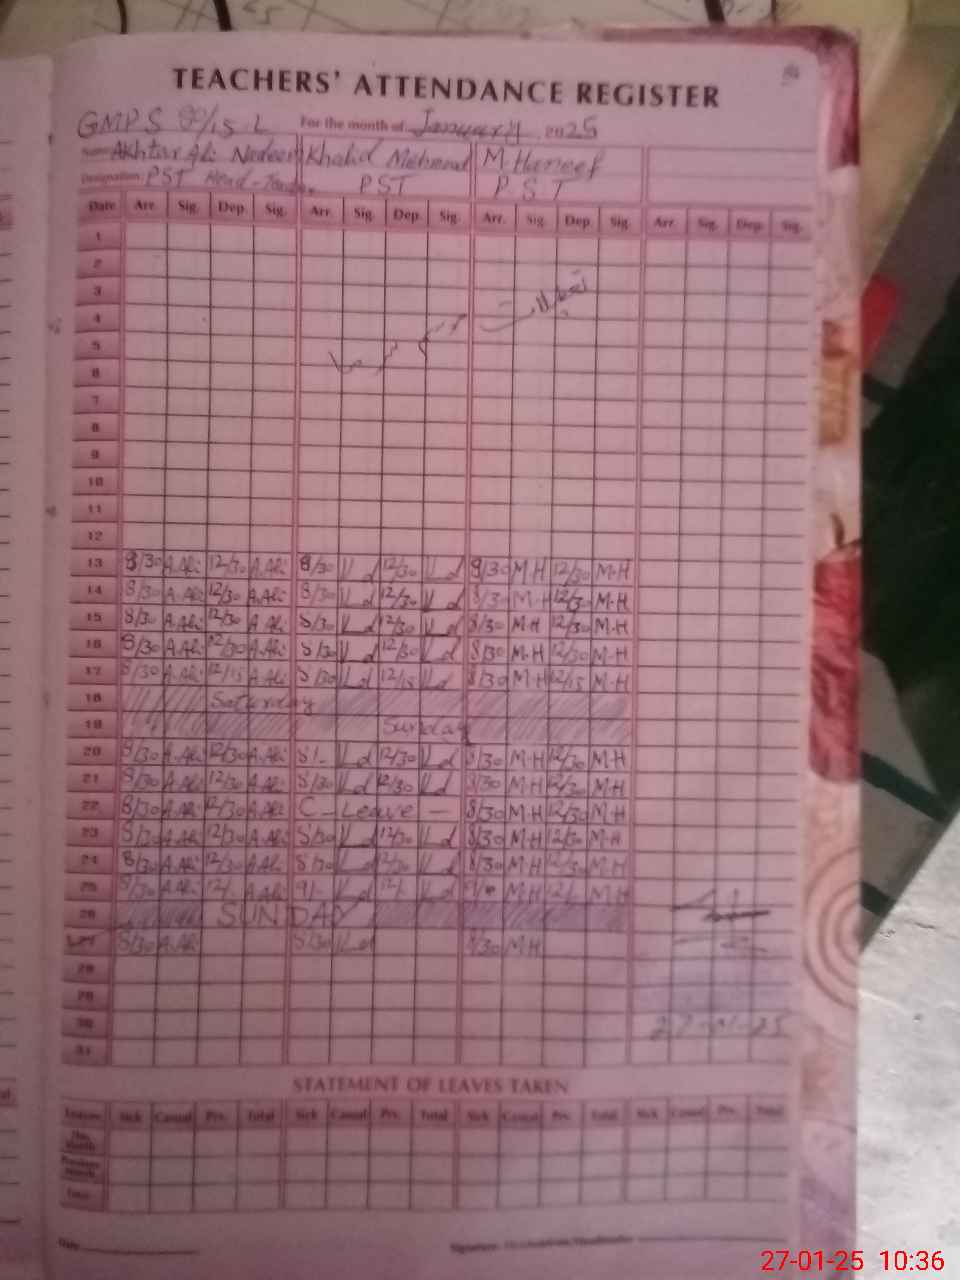 TEACHERS' ATTENDANCE REGISTER
GMPS 90/15 L For the month of January 2025
Name Akhtar Ali Nadeem Khalid Mehmood M. Haneef
Designation PST Head-Teacher PST PST
Date Arr. Sig. Dep. Sig. Arr. Sig. Dep. Sig. Arr. Sig. Dep. Sig. Arr. Sig. Dep. Sig.
1
2
3 تعطیلات
4
5 سرما
6
7
8
9
10
11
12
13 8/30 A.Ali 12/30 A.Ali 8/30 Kd 12/30 Kd 8/30 M-H 12/30 M-H
14 8/30 A.Ali 12/30 A.Ali 8/30 Kd 12/30 Kd 8/30 M-H 12/30 M-H
15 8/30 A.Ali 12/30 A.Ali 8/30 Kd 12/30 Kd 8/30 M-H 12/30 M-H
16 8/30 A.Ali 12/30 A.Ali 8/30 Kd 12/30 Kd 8/30 M-H 12/30 M-H
17 8/30 A.Ali 12/15 A.Ali 8/30 Kd 12/15 Kd 8/30 M-H 12/15 M-H
18 Saturday
19 Sunday
20 8/30 A.Ali 12/30 A.Ali 8/- Kd 12/30 Kd 8/30 M-H 12/30 M-H
21 8/30 A.Ali 12/30 A.Ali 8/30 Kd 12/30 Kd 8/30 M-H 12/30 M-H
22 8/30 A.Ali 12/30 A.Ali C-Leave - 8/30 M-H 12/30 M-H
23 8/30 A.Ali 12/30 A.Ali 8/30 Kd 12/30 Kd 8/30 M-H 12/30 M-H
24 8/30 A.Ali 12/30 A.Ali 8/30 Kd 12/30 Kd 8/30 M-H 12/30 M-H
25 8/30 A.Ali 12/- A.Ali 9/- Kd 12/- Kd M-H 12/- M-H
26 SUNDAY
27 8/30 A.Ali 8/30 Kd 8/30 M-H
28
29
30 27-01-25
31
STATEMENT OF LEAVES TAKEN
Leaves Sick Casual Prv. Total Sick Casual Prv. Total Sick Casual Prv. Total Sick Casual Prv. Total
This Month
Previous Month
Total
Date
Signature
27-01-25 10:36